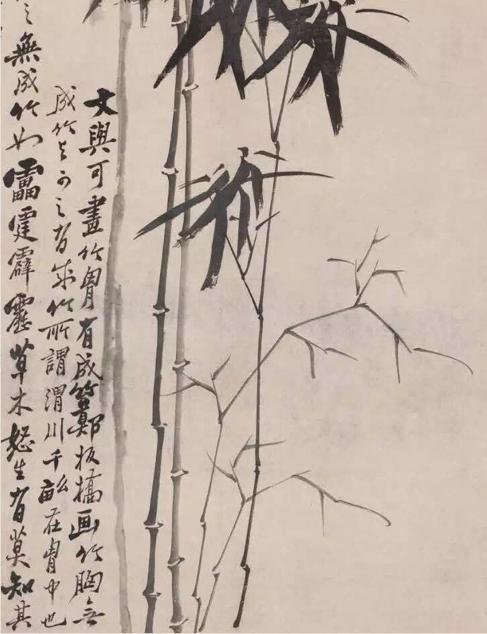 文與可畫竹胷有成鄭板橋画竹胸無
成竹与可之有成竹所謂渭川千畝在胷中也
之無成竹如靁霆霹靂草木怒生有莫知其